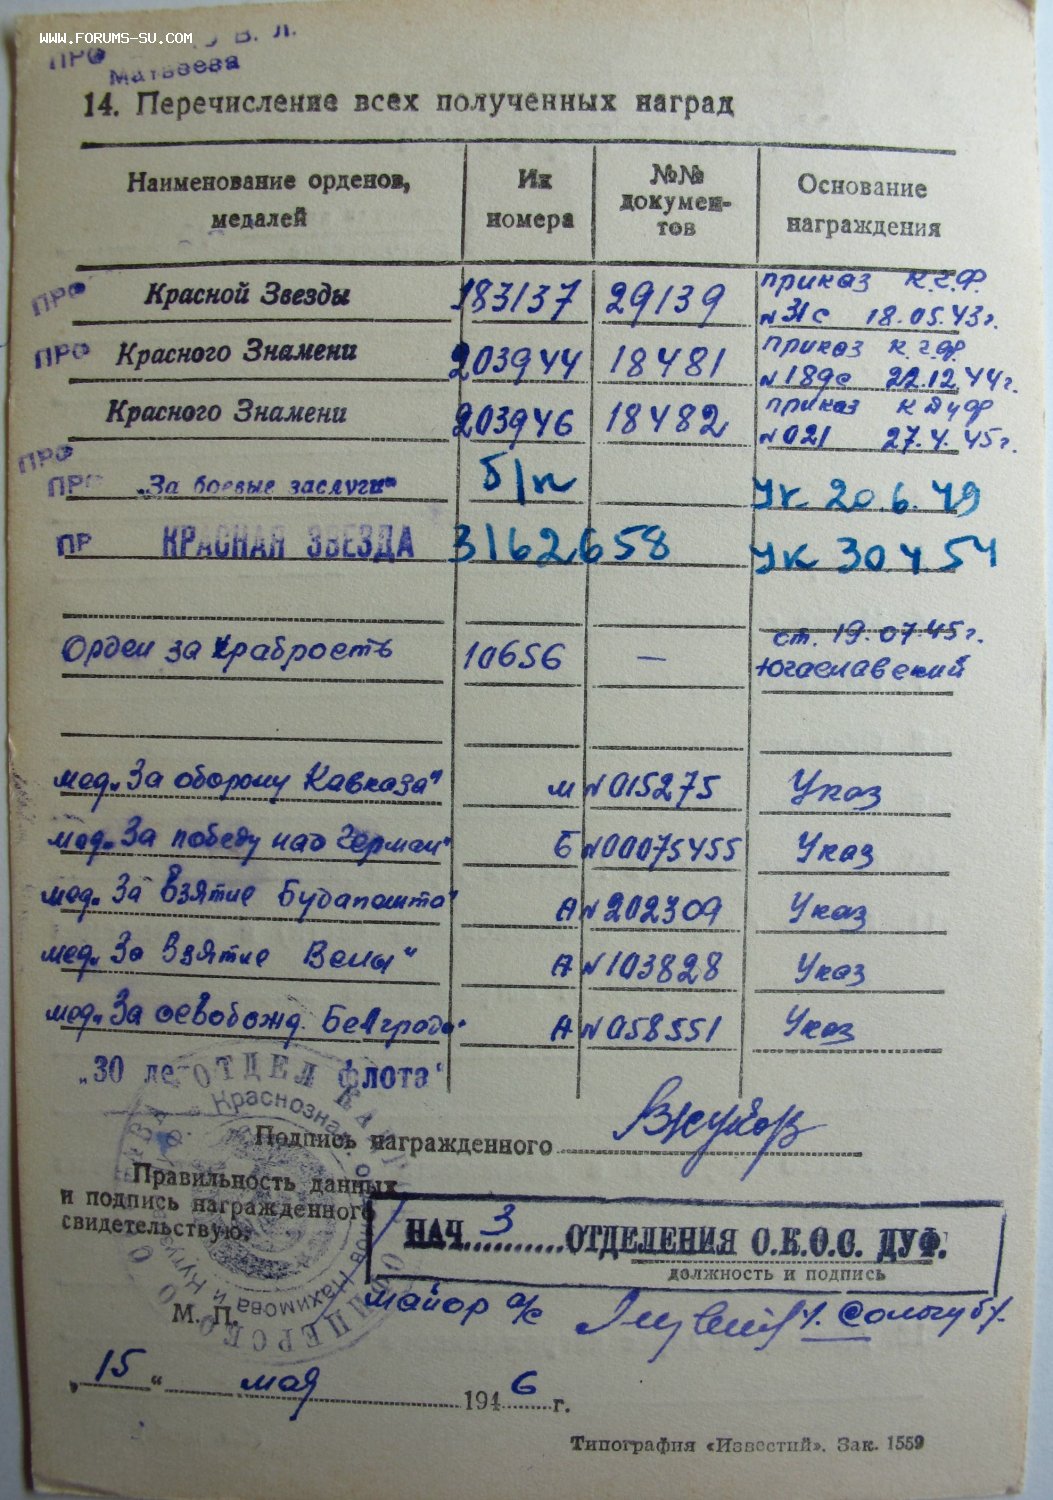 www.forums-su.com
ПРО В. Л.
Матвеева
14. Перечисление всех полученных наград
Наименование орденов, медалей
Их номера
№№ докумен-тов
Основание награждения
ПРО Красной Звезды 183137 29139 приказ К.Ч.Ф. №31с 18.05.43г.
ПРО Красного Знамени 203944 18481 приказ К.Ч.Ф. №189с 22.12.44г.
Красного Знамени 203946 18482 приказ КДуФ №021 27.4.45г.
ПРО
ПРО „За боевые заслуги" б/н УК 20.6.49
ПР КРАСНАЯ ЗВЕЗДА 3162658 УК 30 4 54
Орден за храбрость 10656 — ст. 19.07.45г. югаславский
мед. „За оборону Кавказа" м №015275 Указ
мед. „За победу над Герман" Б №00075455 Указ
мед. „За взятие Будапешта" А №202309 Указ
мед. „За взятие Вены" А №103828 Указ
мед. „За освобожд. Белграда" А №058551 Указ
„30 лет флота"
Подпись награжденного
Правильность данных
и подпись награжденного
свидетельствую:
НАЧ. 3 ОТДЕЛЕНИЯ О.К.О.С. ДУФ.
должность и подпись
майор а/с
М. П.
„15" мая 1946 г.
Типография «Известий». Зак. 1559